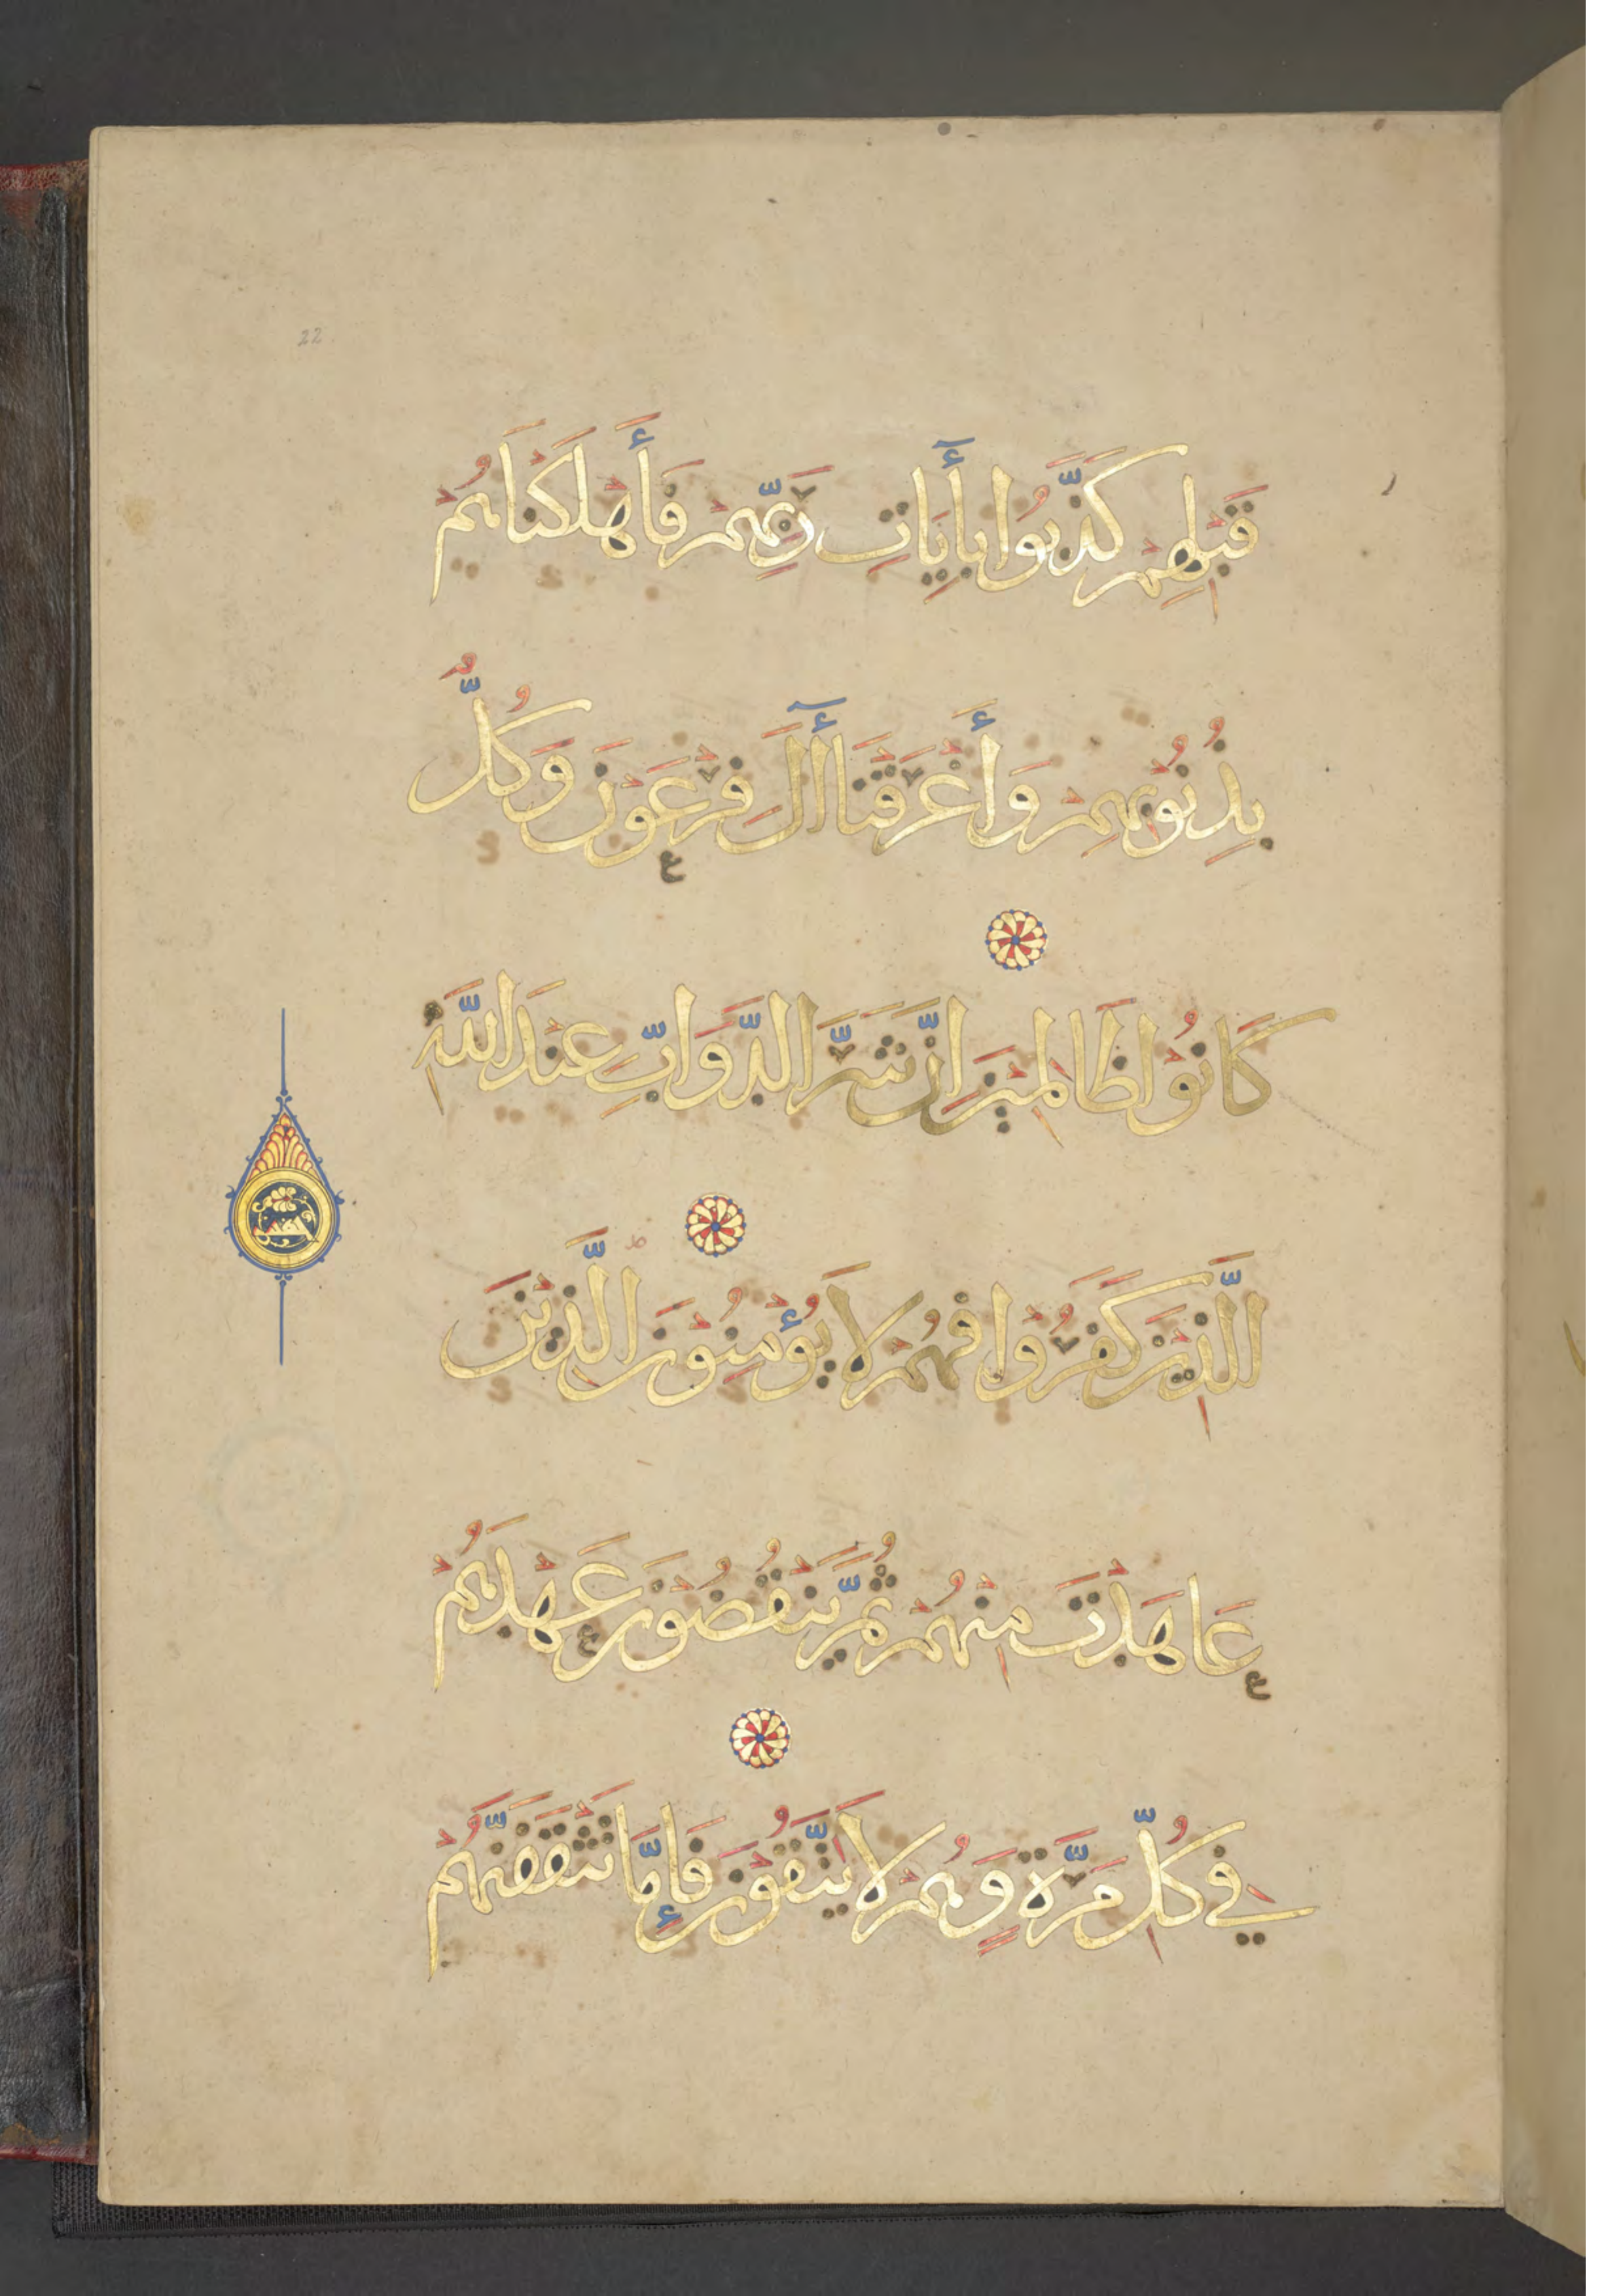 22
قَبْلِهِمْ كَذَّبُوا بِأٓيَاتِ رَبِّهِمْ فَأَهْلَكْنَاهُمْ
بِذُنُوبِهِمْ وَأَغْرَقْنَا أٓلَ فِرْعَوْنَ وَكُلٌّ
كَانُوا ظَالِمِيْنَ اِنَّ شَرَّ الدَّوَابِّ عِنْدَ اللَّهِ
الَّذِيْنَ كَفَرُوْا فَهُمْ لَا يُؤْمِنُوْنَ الَّذِيْنَ
عَاهَدْتَ مِنْهُمْ ثُمَّ يَنْقُضُوْنَ عَهْدَهُمْ
فِي كُلِّ مَرَّةٍ وَهُمْ لَا يَتَّقُوْنَ فَإِمَّا تَثْقَفَنَّهُمْ